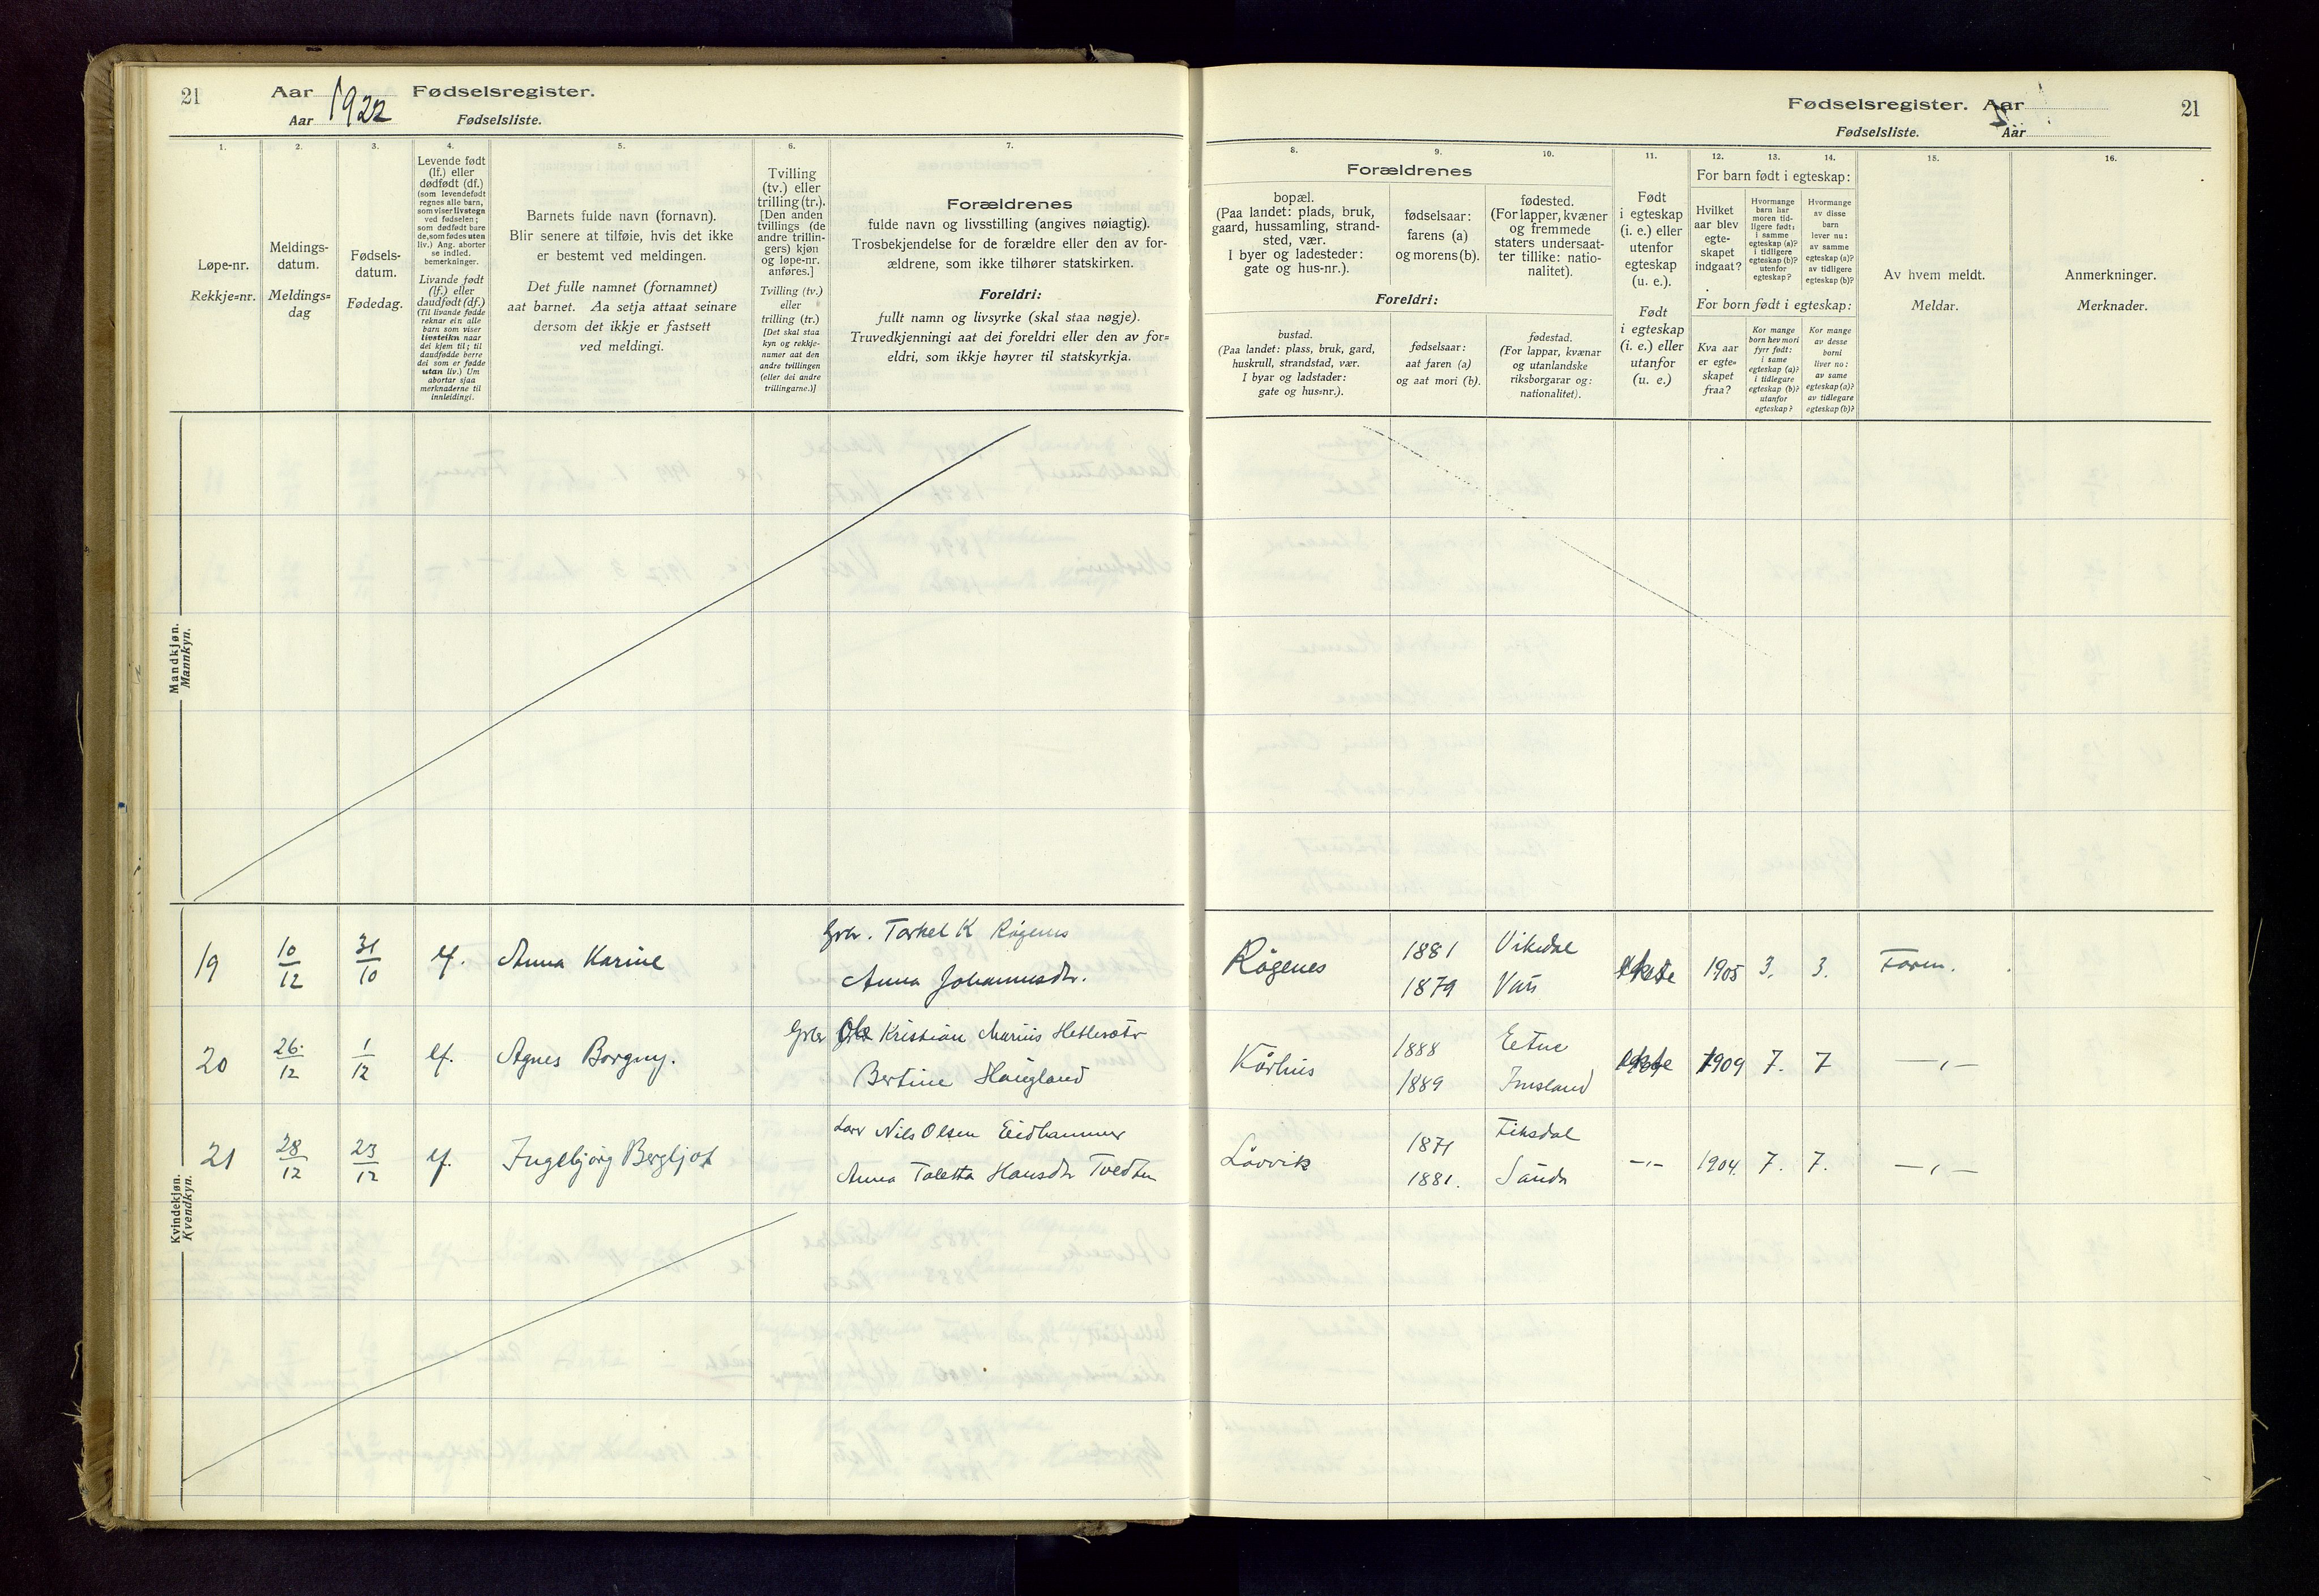 21 Aar 1922 Fødselsregister.
Aar Fødselsliste.
1. 2. 3. 4. 5. 6. 7.
Løpe-nr.
Rekkje=nr.
Meldings-
datum.
Meldings=
dag
Fødsels-
datum.
Fødedag.
Levende født
(lf.) eller
dødfødt (df.)
(som levendefødt
regnes alle barn,
som viser livstegn
ved fødselen;
som dødfødt bare
de, som fødes uten
liv.) Ang. aborter
se indled.
bemerkninger.
Livande født
(lf.) eller
daudfødt (df.)
(Til livande fødde
reknar ein alle
barn som viser
livsteikn naar
dei kjem til; til
daudfødde berre
dei som er fødde
utan liv.) Um
abortar sjaa
merknaderne til
innleidingi.
Barnets fulde navn (fornavn).
Blir senere at tilføie, hvis det ikke
er bestemt ved meldingen.
Det fulle namnet (fornamnet)
aat barnet. Aa setja attaat seinare
dersom det ikkje er fastsett
ved meldingi.
Tvilling
(tv.) eller
trilling (tr.).
[Den anden
tvillings (de
andre trillin-
gers) kjøn
og løpe-nr.
anføres.]
Tvilling (tv.)
eller
trilling (tr.)
[Det skal staa
kyn og rekkje-
numer aat den
andre tvillingen
(eller dei andre
trillingarne.)]
Forældrenes
fulde navn og livsstilling (angives nøiagtig).
Trosbekjendelse for de forældre eller den av for-
ældrene, som ikke tilhører statskirken.
Foreldri:
fullt namn og livsyrke (skal staa nøgje).
Truvedkjenningi aat dei foreldri eller den av for=
eldri, som ikkje høyrer til statskyrkja.
Mandkjøn.
Mannkyn.
Kvindekjøn.
Kvendkyn.
19 10/12 31/10 lf. Anna Karine
Gbr. Torkel K Rögenes
Anna Johannesdtr.
20 26/12 1/12 lf. Agnes Borgny.
Gbr Ole Kristian Marius Hetlesæter
Bertine Haugland
21 28/12 23/12 lf. Ingebjörg Bergljot
Nils Olsen Eidhammer
Anna Taletta Hansdtr Tvedten
Fødselsregister. Aar 21
Fødselsliste. Aar
8. 9. 10. 11. 12. 13. 14. 15. 16.
Forældrenes
bopæl.
(Paa landet: plads, bruk,
gaard, hussamling, strand-
sted, vær.
I byer og ladesteder:
gate og hus-nr.).
fødselsaar:
farens (a)
og morens (b).
fødested.
(For lapper, kvæner
og fremmede
staters undersaat-
ter tillike: natio-
nalitet).
Foreldri:
bustad.
(Paa landet: plass, bruk, gard,
huskrull, strandstad, vær.
I byar og ladstader:
gate og hus=nr.).
fødselsaar:
aat faren (a)
og aat mori (b).
fødestad.
(For lappar, kvænar
og utanlandske
riksborgarar og:
nationalitet).
Født
i egteskap
(i. e.) eller
utenfor
egteskap
(u. e.).
Født
i egteskap
(i. e.) eller
utanfor
(u. e.)
For barn født i egteskap:
Hvilket
aar blev
egte-
skapet
indgaat?
Hvormange
barn har
moren tid-
ligere født:
i samme
egteskap (a)?
i tidligere
egteskap (b)?
utenfor
egteskap?
Hvormange
av disse
barn
lever nu:
av samme
egteskap (a)?
av tidligere
egteskap (b)?
For born født i egteskap:
Kva aar
er egte-
skapet
fraa?
Kor mange
born hev mori
fyrr født:
i same
egteskap (a)?
i tidlegare
egteskap (b)?
utanfor
egteskap?
Kor mange
av desse
borni
liver no:
av same
egteskap (a)?
av tidlegare
egteskap (b)?
Av hvem meldt.
Meldar.
Anmerkninger.
Merknader.
Rögenes 1881 Vikedal ekte 1905 3. 3. Foren.
1879 Vats
Kårhus 1888 Eetne ekte 1909 7. 7 —"—
1889 Imsland
Lövvik 1871 Fiksdal —"— 1904. 7. 7. —"—
1881. Saude